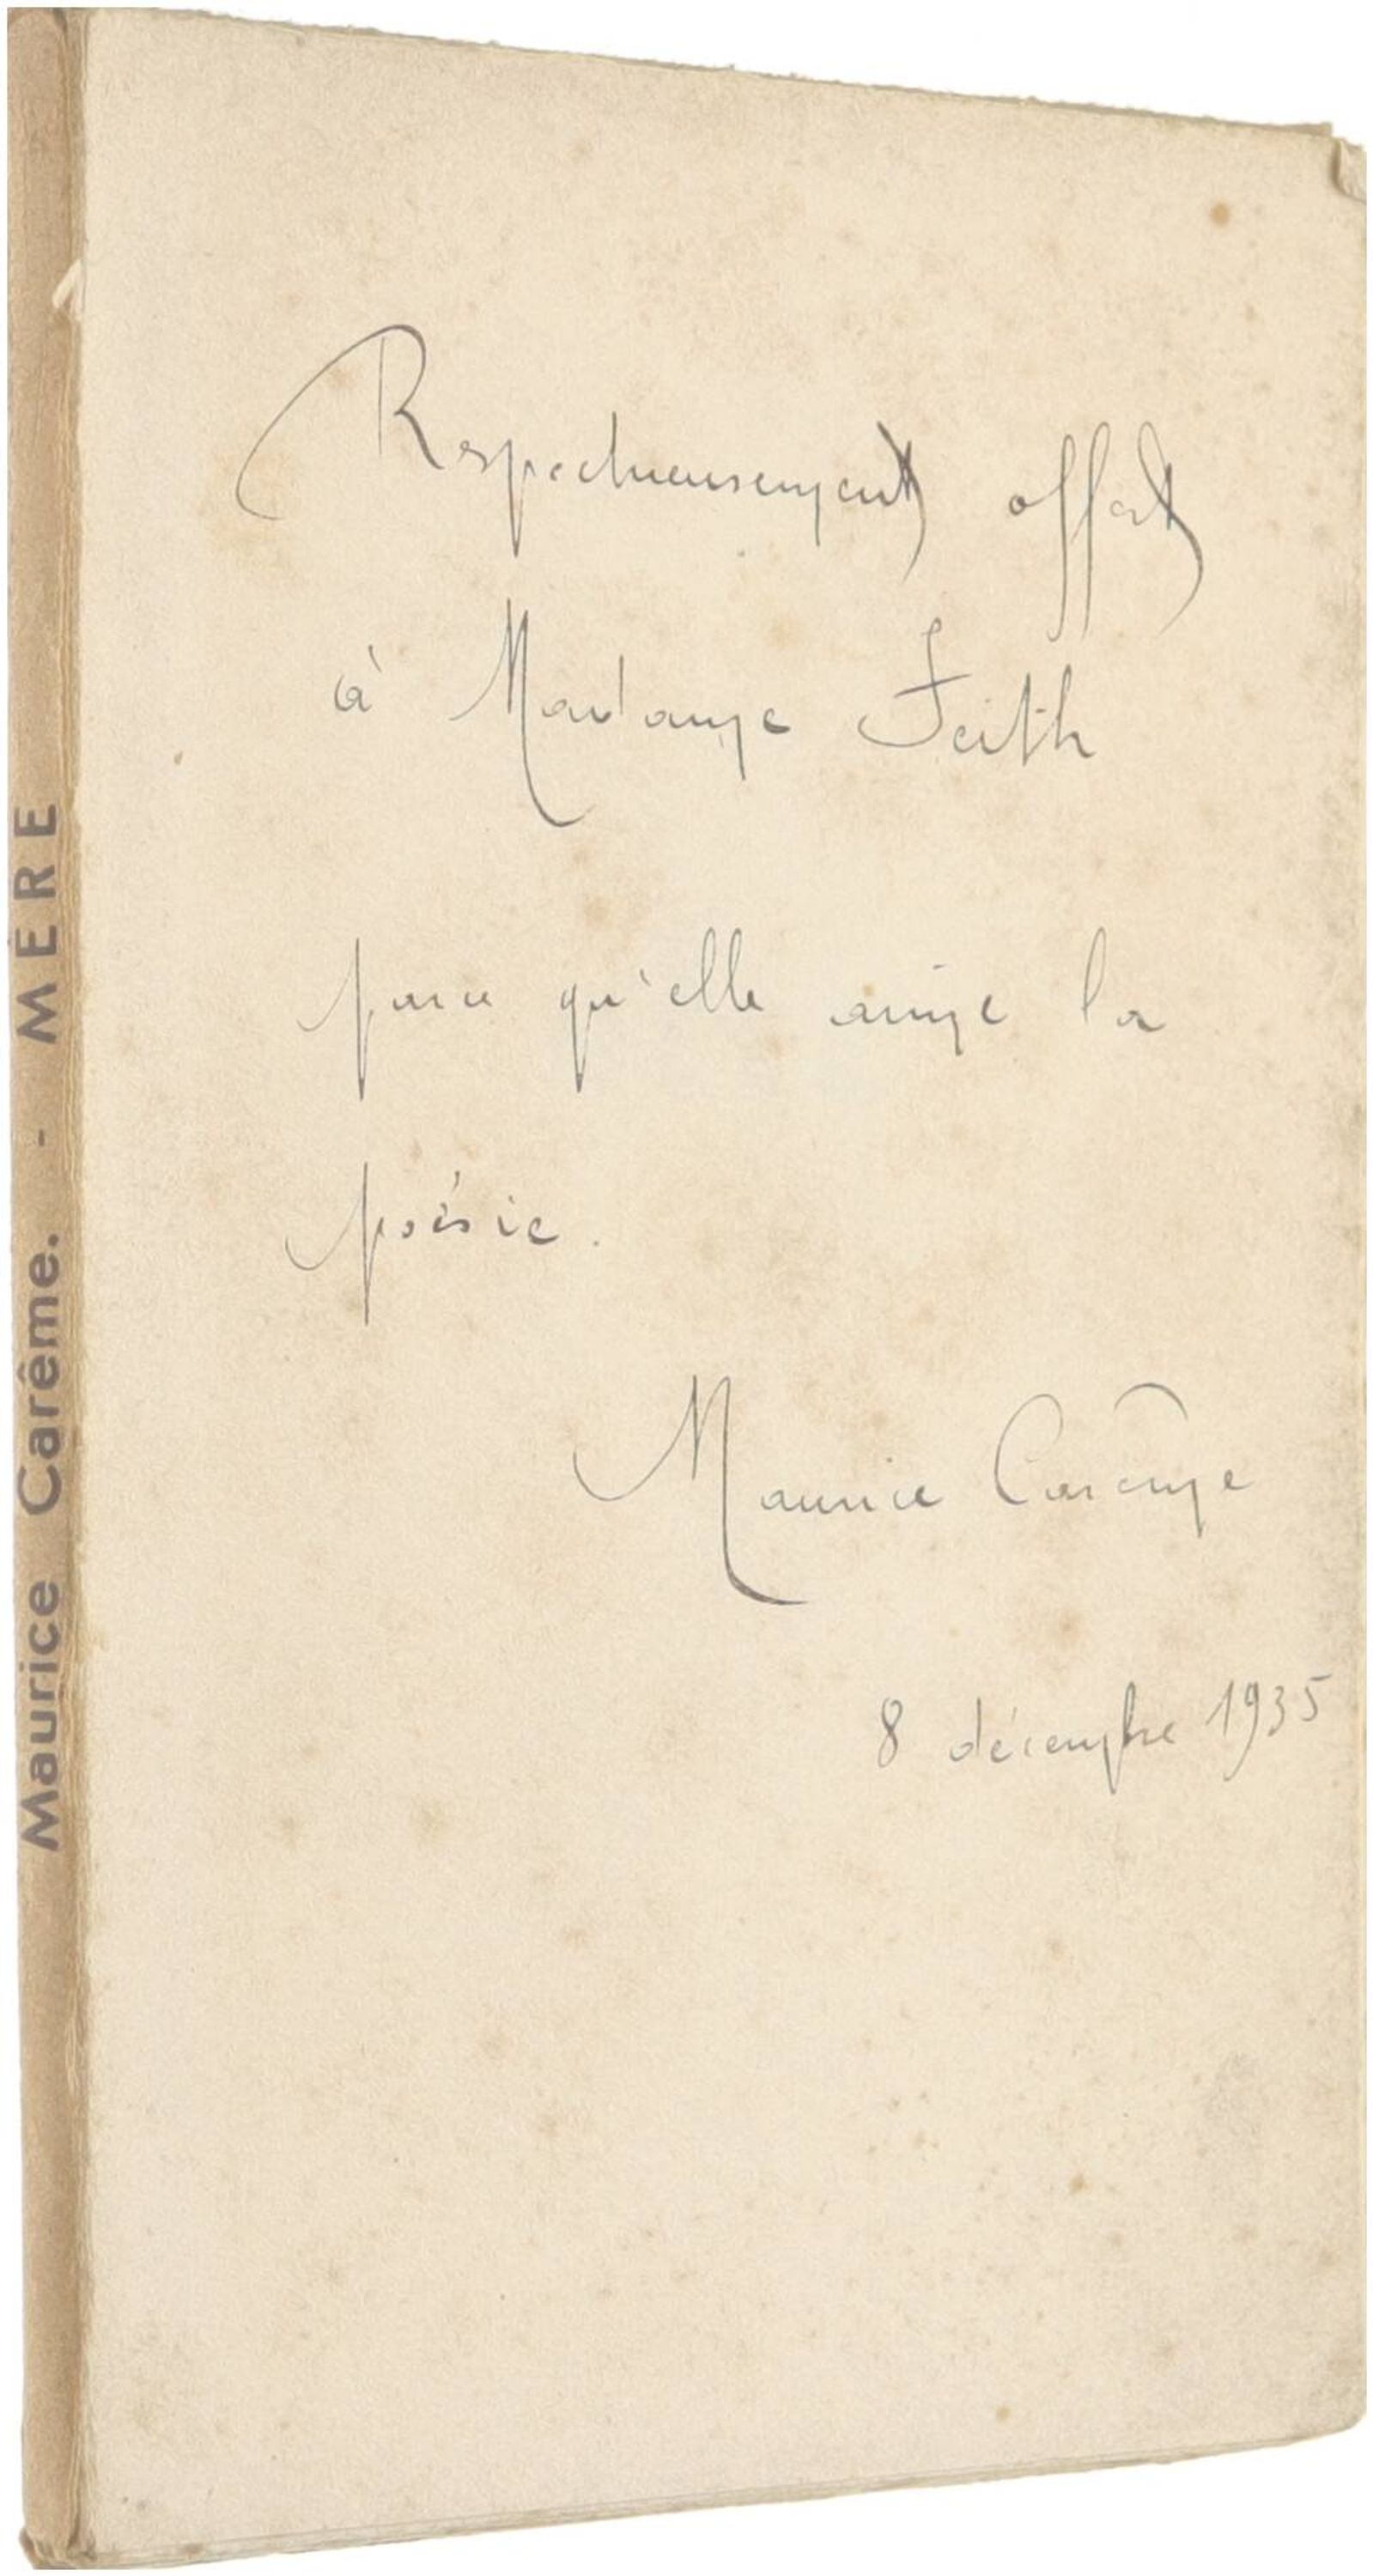 Maurice Carême. - MÈRE
Respectueusement offert
à Madame Feith
parce qu'elle aime la
poésie.
Maurice Carême
8 décembre 1935